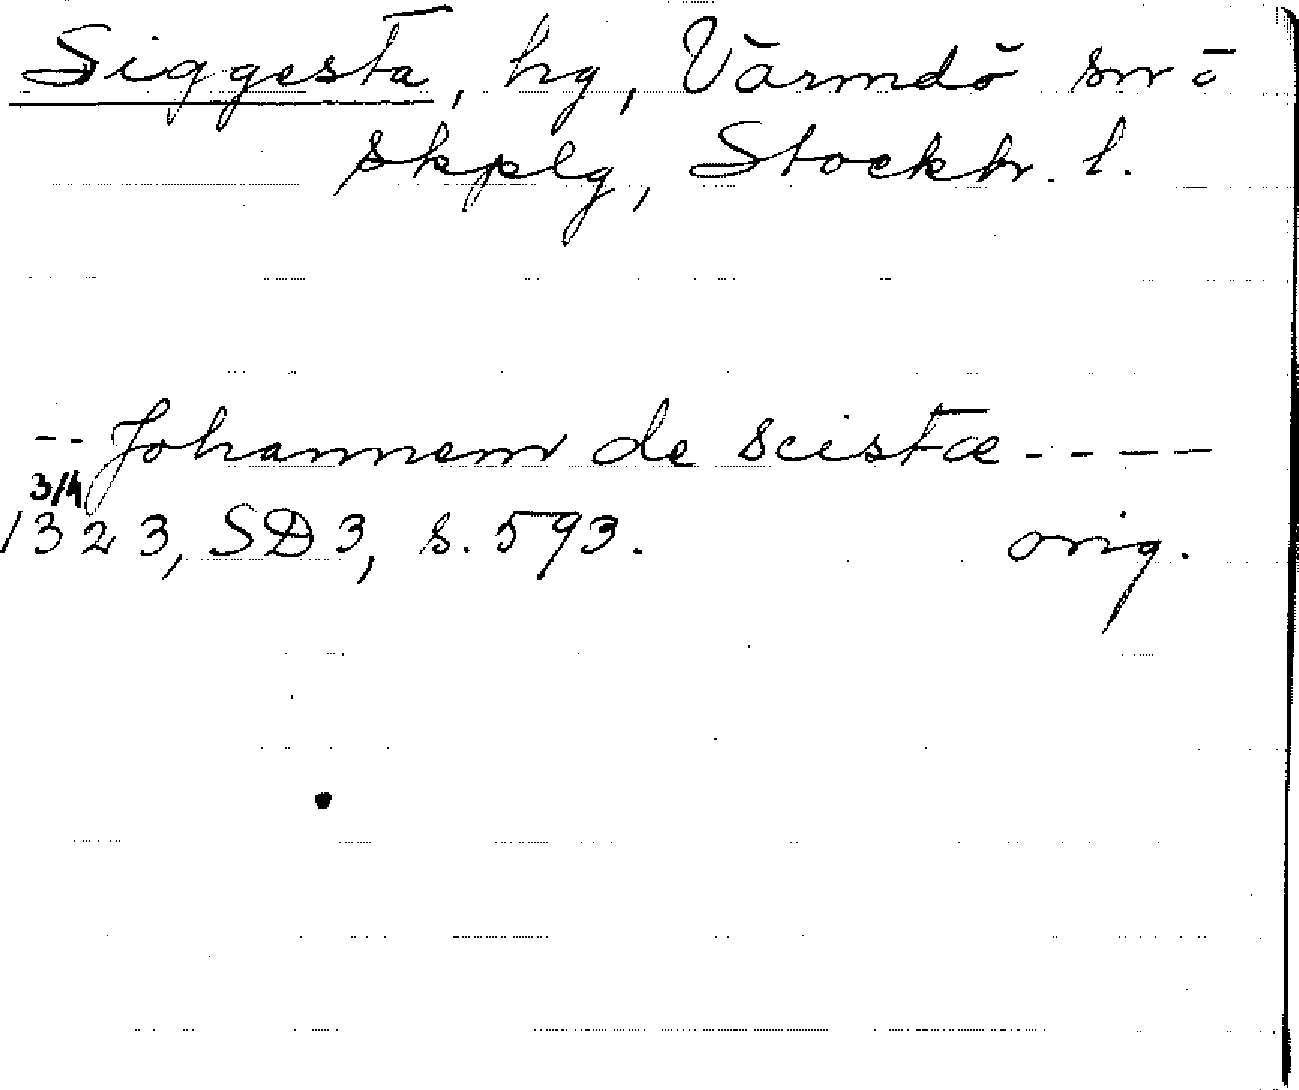 Siggesta, hg, Värmdö sn o
skplg, Stockh. l.
-- Johannem de scistæ ----
3/4
1323, SD 3, s. 593. orig.